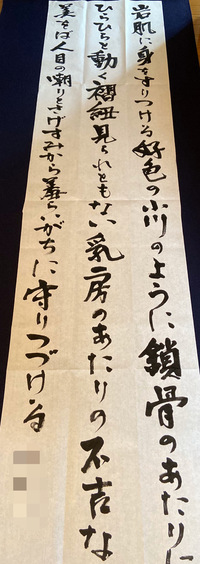 岩肌に身をすりつける好色の小川のように鎖骨のあたりに
ひらひらと動く褶紐見られともない乳房のあたりの不吉な
美をば人目の嘲りとさげすみから羞らいがちに守りつづける